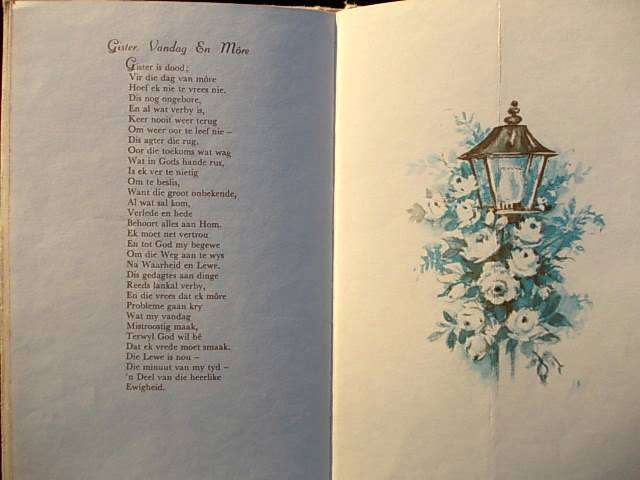 Gister, Vandag En Môre
Gister is dood;
Vir die dag van môre
Hoef ek nie te vrees nie.
Dis nog ongebore,
En al wat verby is,
Keer nooit weer terug
Om weer oor te leef nie –
Dis agter die rug,
Oor die toekoms wat wag
Wat in Gods hande rus,
Is ek ver te nietig
Om te beslis,
Want die groot onbekende,
Al wat sal kom,
Verlede en hede
Behoort alles aan Hom.
Ek moet net vertrou
En tot God my begewe
Om die Weg aan te wys
Na Waarheid en Lewe.
Dis gedagtes aan dinge
Reeds lankal verby,
En die vrees dat ek môre
Probleme gaan kry
Wat my vandag
Mistroostig maak,
Terwyl God wil hê
Dat ek vrede moet smaak.
Die Lewe is nou –
Die minuut van my tyd –
'n Deel van die heerlike
Ewigheid.